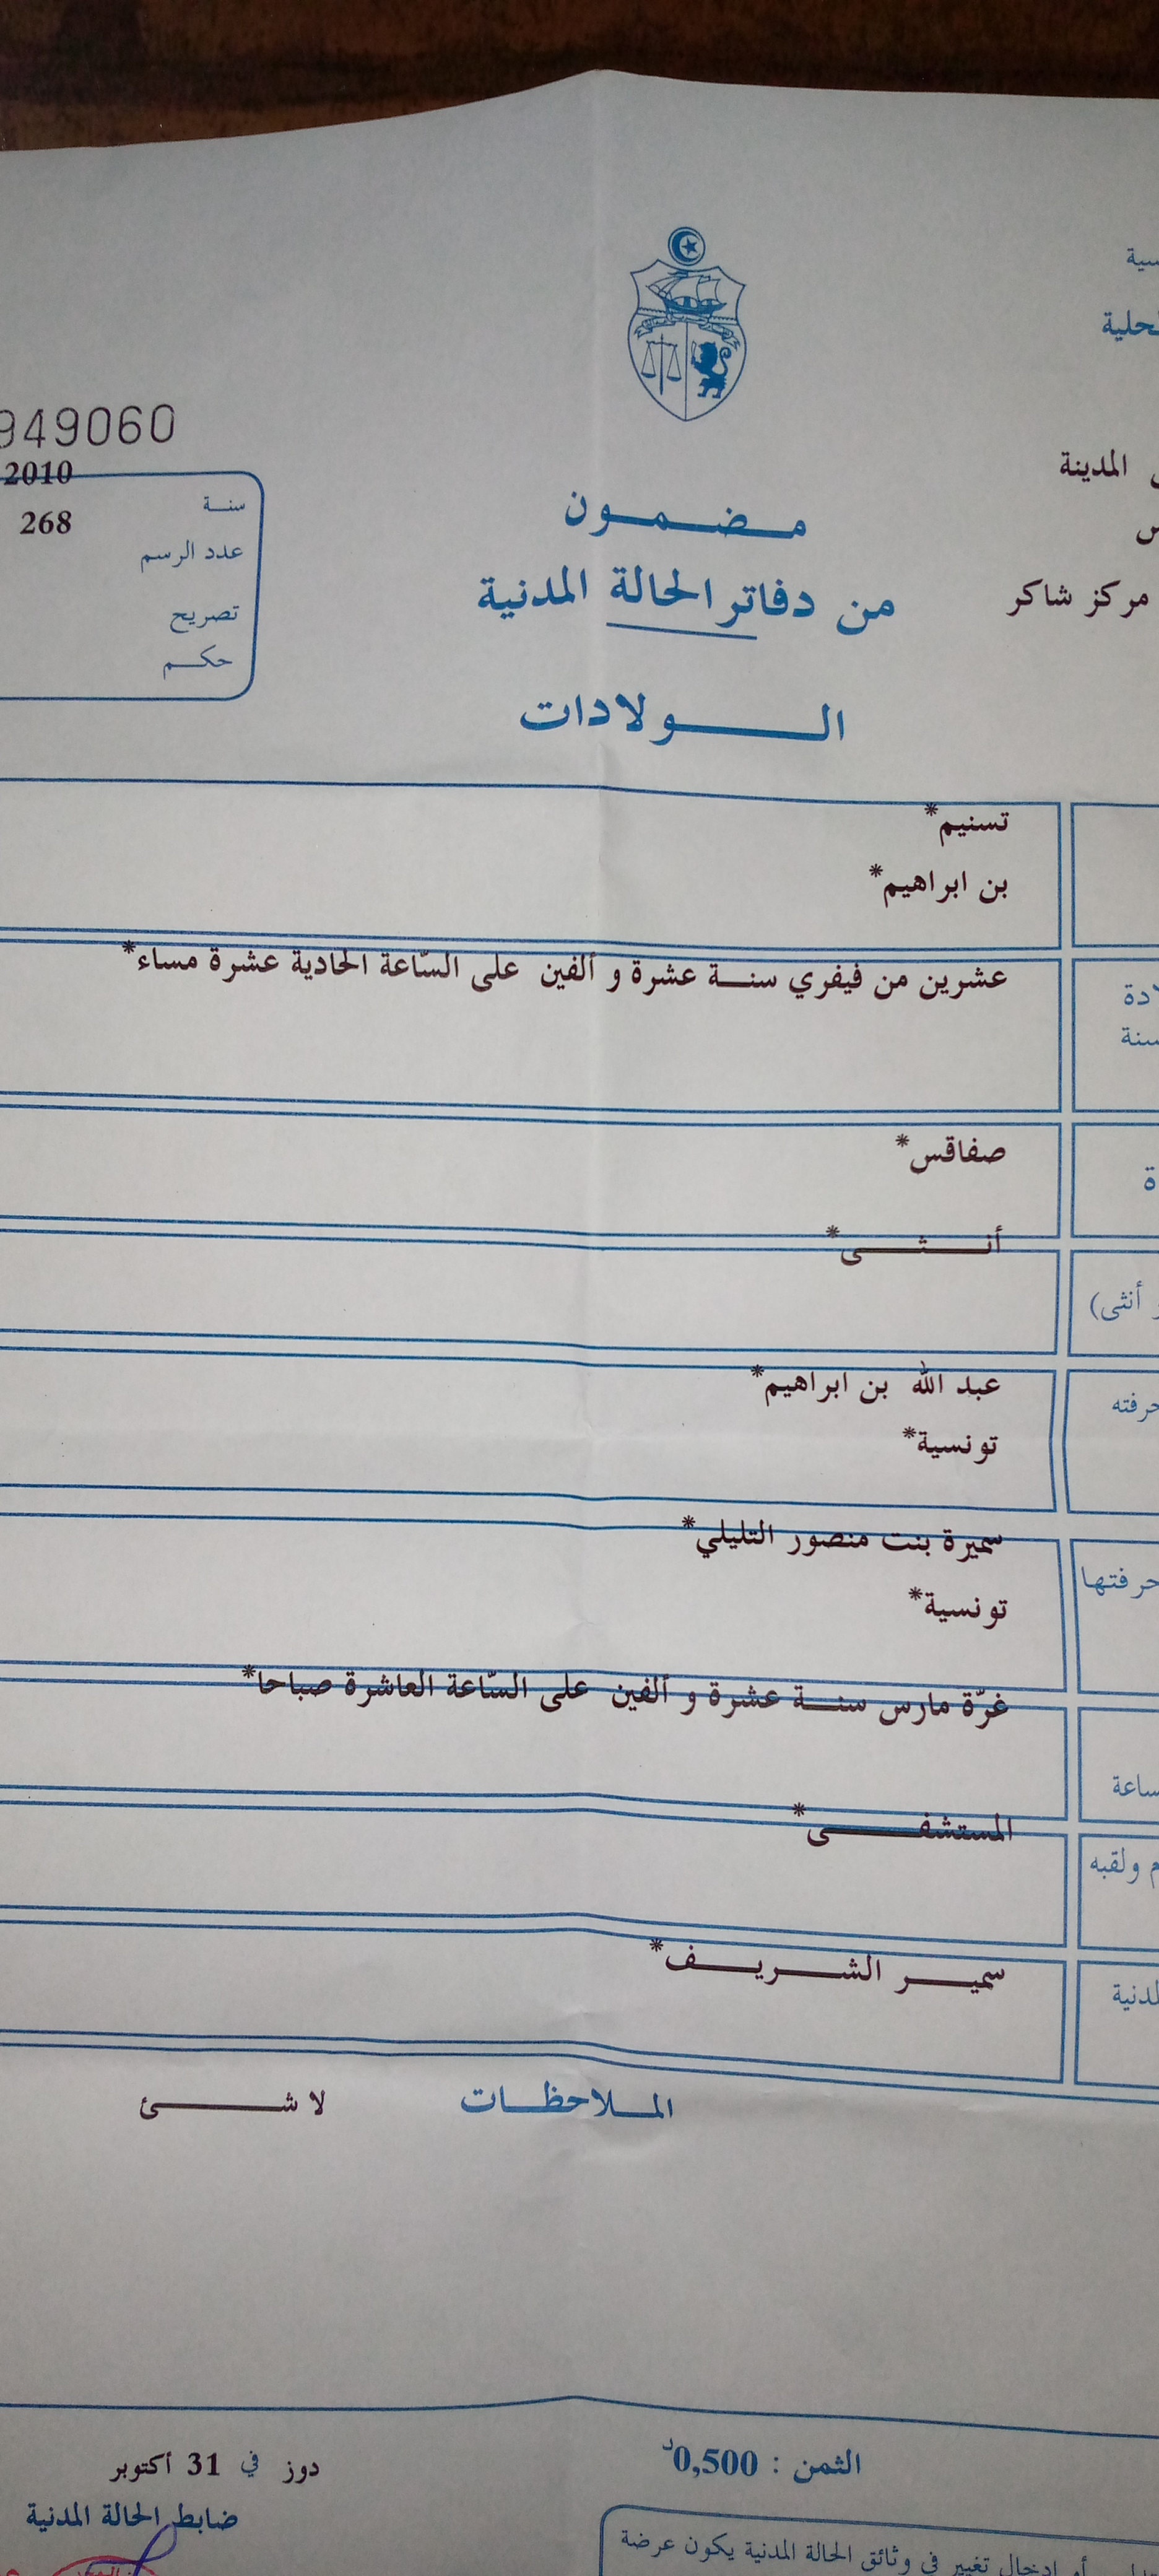 المدينة
949060
2010
سنة
268
عدد الرسم
تصريح
حكم
مضمون
من دفاتر الحالة المدنية
مركز شاكر
الولادات
تسنيم*
بن ابراهيم*
عشرين من فيفري سنة عشرة و ألفين على السّاعة الحادية عشرة مساء*
صفاقس*
أنثى*
أنثى)
عبد الله بن ابراهيم*
حرفته
تونسية*
سميرة بنت منصور التليلي*
حرفتها
تونسية*
غرّة مارس سنة عشرة و ألفين على السّاعة العاشرة صباحا*
ساعة
المستشفى*
ولقبه
سمير الشريف*
الملاحظات
لا شئ
الثمن : 0,500د
دوز في 31 أكتوبر
ضابط الحالة المدنية
أو ادخال تغيير في وثائق الحالة المدنية يكون عرضة